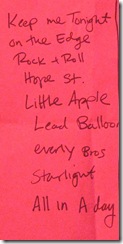 Keep me Tonight
on the Edge
Rock & Roll
Hope St.
Little Apple
Lead Balloon
everly Bros
Starlight
All in A day